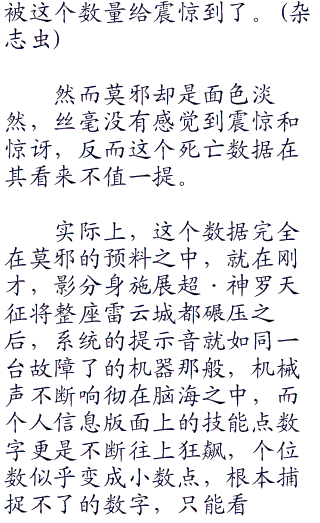 被这个数量给震惊到了。(杂
志虫)
然而莫邪却是面色淡
然，丝毫没有感觉到震惊和
惊讶，反而这个死亡数据在
其看来不值一提。
实际上，这个数据完全
在莫邪的预料之中，就在刚
才，影分身施展超·神罗天
征将整座雷云城都碾压之
后，系统的提示音就如同一
台故障了的机器那般，机械
声不断响彻在脑海之中，而
个人信息版面上的技能点数
字更是不断往上狂飙，个位
数似乎变成小数点，根本捕
捉不了的数字，只能看